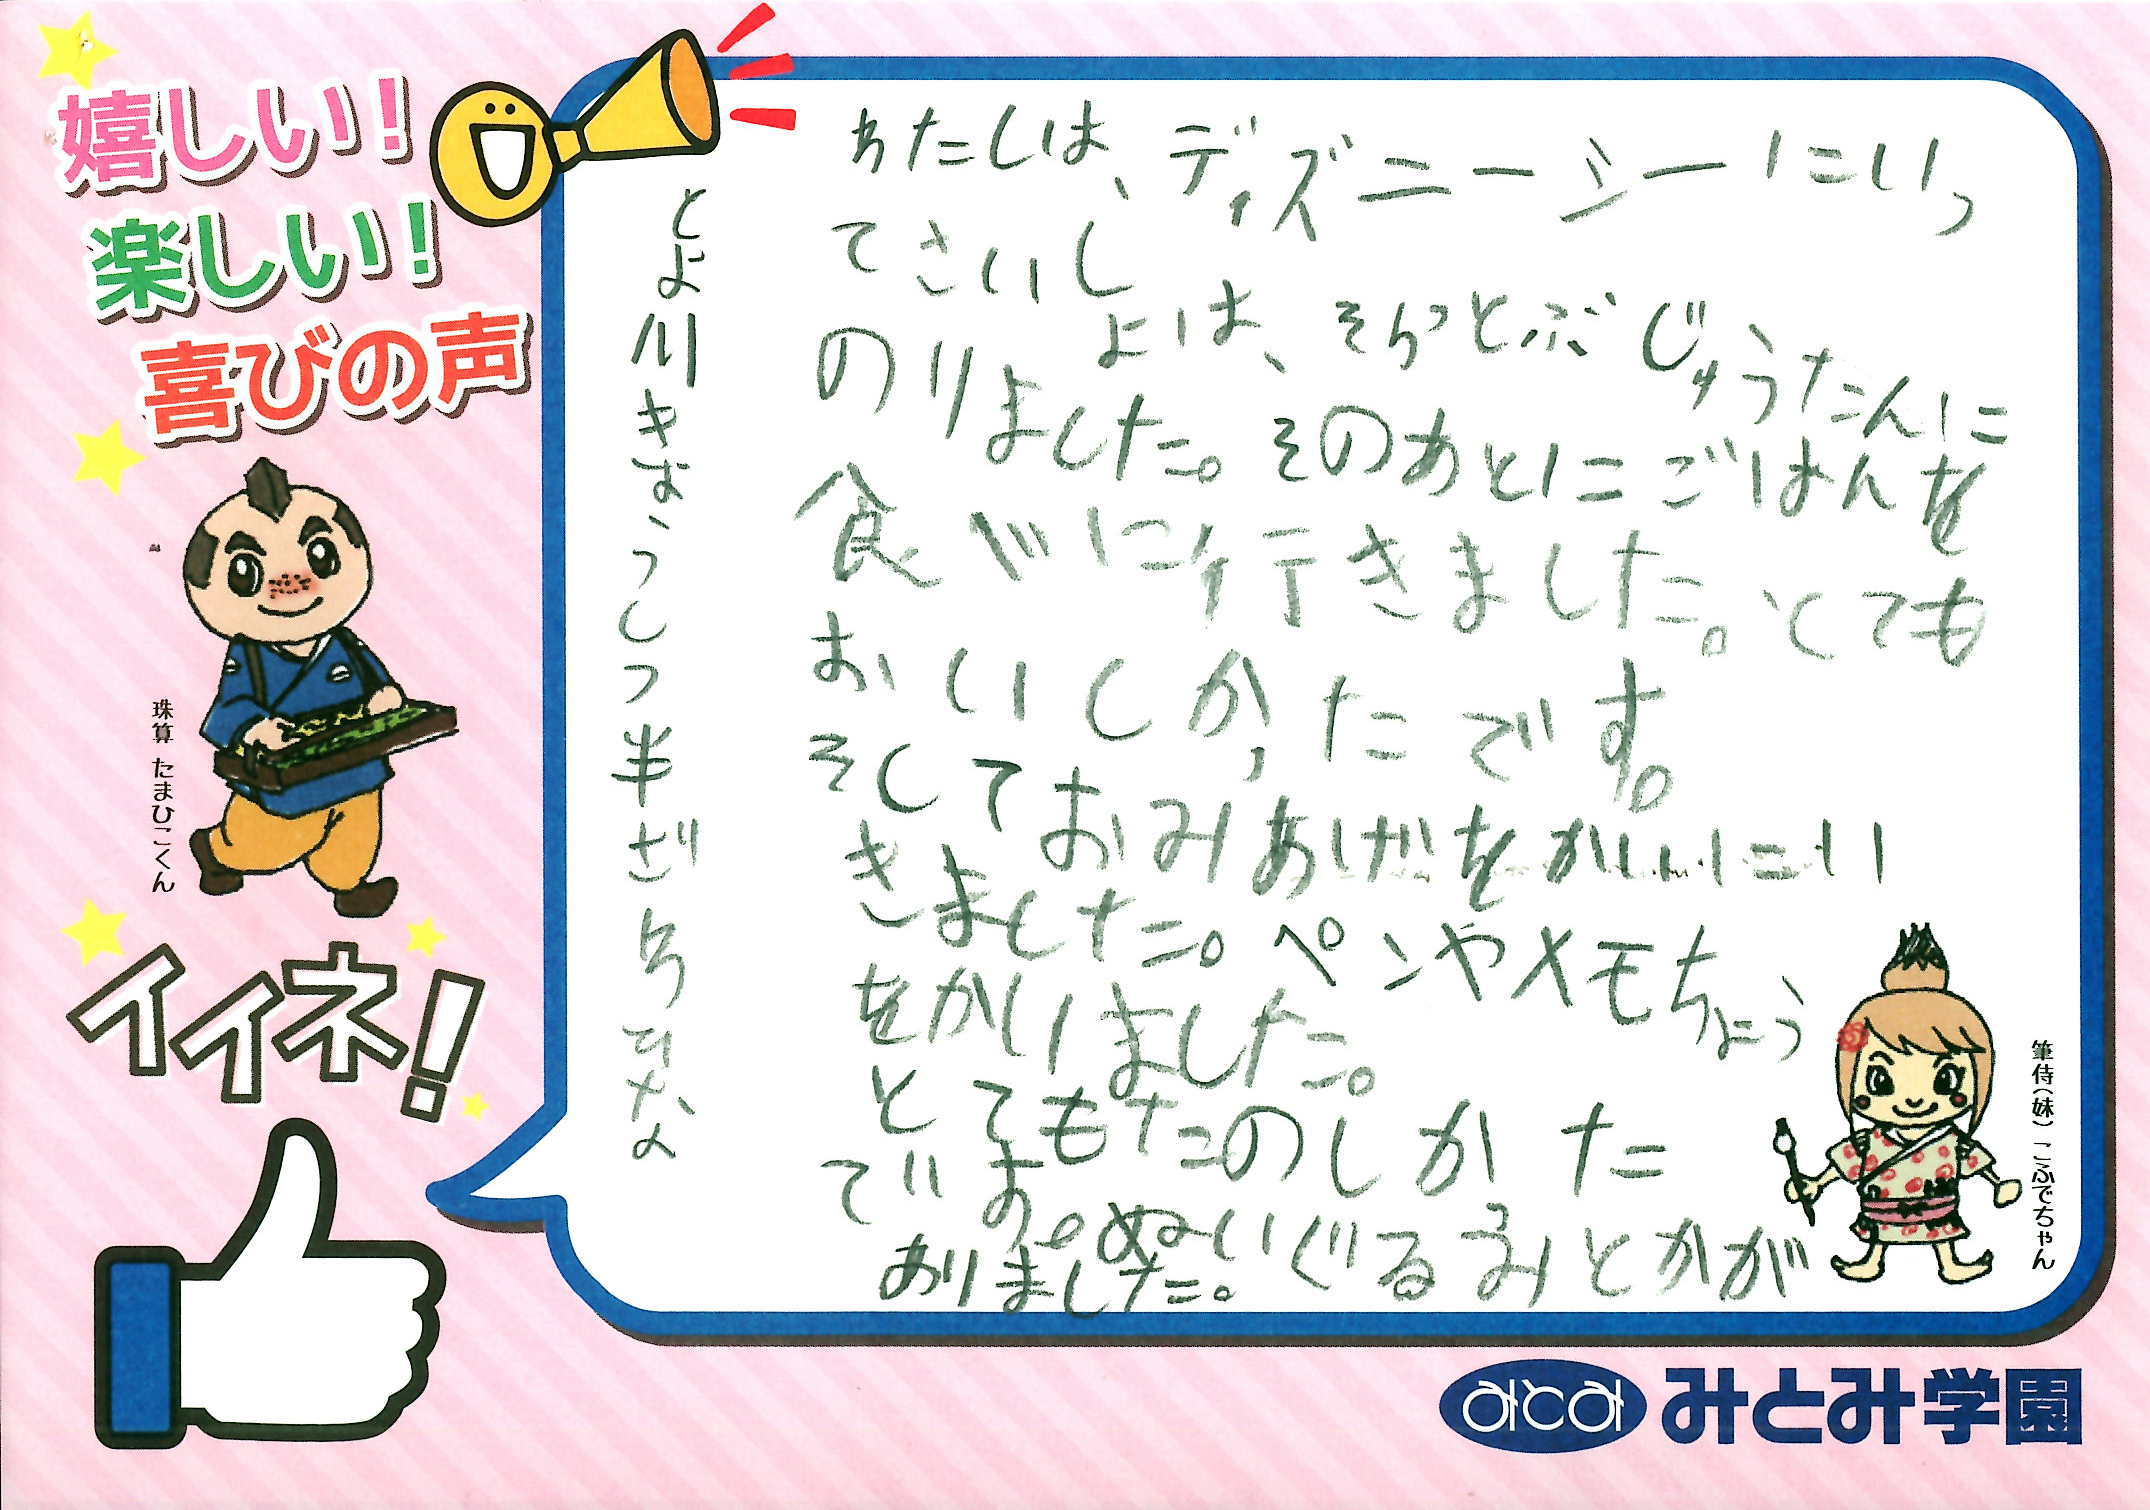 嬉しい!
楽しい!
喜びの声
わたしは、ディズニーシーにいっ
てさいしょは、そらっとぶじゅうたんに
のりました。そのあとにごはんを
食べに行きました。とても
おいしかったです。
そしておみあげをかいにい
きました。ペンやメモちょう
をかいました。
とてもたのしかた
です。ぬいぐるみとかが
ありました。
とよ川きょうしつ
珠算 たまひこくん
イイネ!
筆侍(妹) こふでちゃん
みとみ みとみ学園